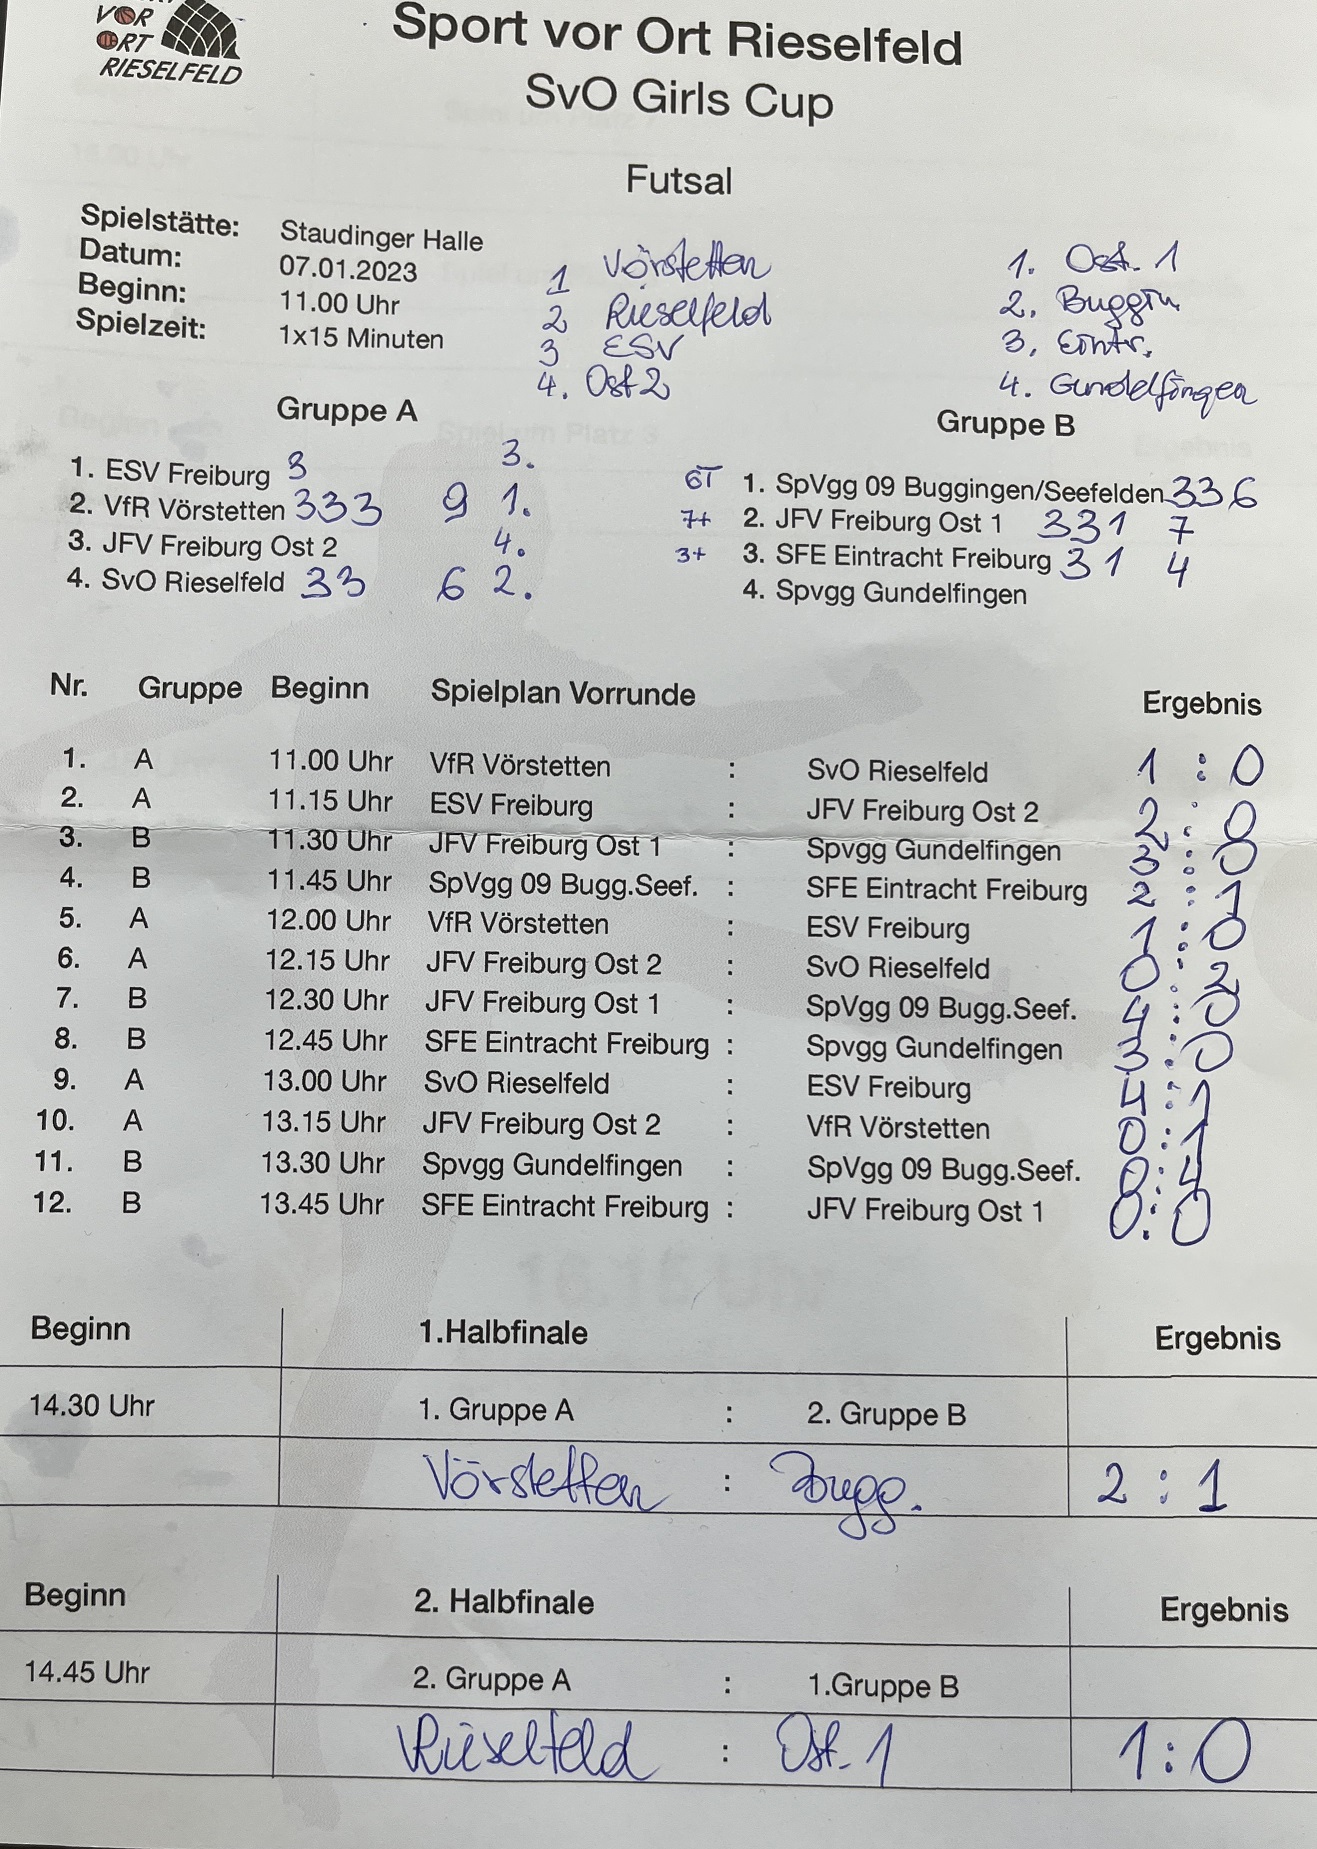 VOR
ORT
RIESELFELD
Sport vor Ort Rieselfeld
SvO Girls Cup
Futsal
Spielstätte: Staudinger Halle
Datum: 07.01.2023
Beginn: 11.00 Uhr
Spielzeit: 1x15 Minuten
1 Vörstetten
2 Rieselfeld
3 ESV
4. Ost 2
1. Ost. 1
2. Buggin
3. Eintr.
4. Gundelfingen
Gruppe A
1. ESV Freiburg 3 3.
2. VfR Vörstetten 333 9 1.
3. JFV Freiburg Ost 2 4.
4. SvO Rieselfeld 33 6 2.
Gruppe B
6T 1. SpVgg 09 Buggingen/Seefelden 33 6
7+ 2. JFV Freiburg Ost 1 331 7
3+ 3. SFE Eintracht Freiburg 31 4
4. Spvgg Gundelfingen
Nr. Gruppe Beginn Spielplan Vorrunde Ergebnis
1. A 11.00 Uhr VfR Vörstetten : SvO Rieselfeld 1 : 0
2. A 11.15 Uhr ESV Freiburg : JFV Freiburg Ost 2 2 : 0
3. B 11.30 Uhr JFV Freiburg Ost 1 : Spvgg Gundelfingen 3 : 0
4. B 11.45 Uhr SpVgg 09 Bugg.Seef. : SFE Eintracht Freiburg 2 : 1
5. A 12.00 Uhr VfR Vörstetten : ESV Freiburg 1 : 0
6. A 12.15 Uhr JFV Freiburg Ost 2 : SvO Rieselfeld 0 : 2
7. B 12.30 Uhr JFV Freiburg Ost 1 : SpVgg 09 Bugg.Seef. 4 : 0
8. B 12.45 Uhr SFE Eintracht Freiburg : Spvgg Gundelfingen 3 : 0
9. A 13.00 Uhr SvO Rieselfeld : ESV Freiburg 4 : 1
10. A 13.15 Uhr JFV Freiburg Ost 2 : VfR Vörstetten 0 : 1
11. B 13.30 Uhr Spvgg Gundelfingen : SpVgg 09 Bugg.Seef. 0 : 4
12. B 13.45 Uhr SFE Eintracht Freiburg : JFV Freiburg Ost 1 0 : 0
Beginn 1.Halbfinale Ergebnis
14.30 Uhr 1. Gruppe A : 2. Gruppe B
Vörstetten : Bugg. 2 : 1
Beginn 2. Halbfinale Ergebnis
14.45 Uhr 2. Gruppe A : 1.Gruppe B
Rieselfeld : Ost. 1 1 : 0